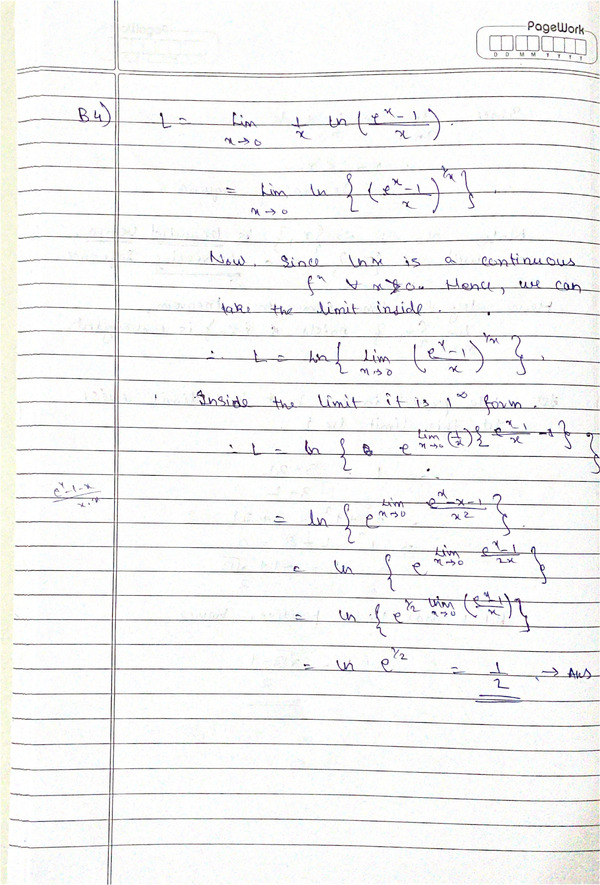 PageWork
D D M M Y Y Y Y
B4) L = Lim x→0 1/x ln((e^x-1)/x).
= Lim x→0 ln{((e^x-1)/x)^(1/x)}.
Now, since ln x is a continuous
f^n ∀ x>0. Hence, we can
take the limit inside.
∴ L = ln{Lim x→0 ((e^x-1)/x)^(1/x)}.
Inside the limit it is 1^∞ form.
∴ L = ln{e^(Lim x→0 (1/x){(e^x-1)/x -1})}
(e^x-1-x)/(x·x)
= ln{e^(Lim x→0 (e^x-x-1)/x^2)}.
= ln{e^(Lim x→0 (e^x-1)/2x)}
= ln{e^(1/2 Lim x→0 ((e^x-1)/x))}
= ln e^(1/2) = 1/2. → Ans